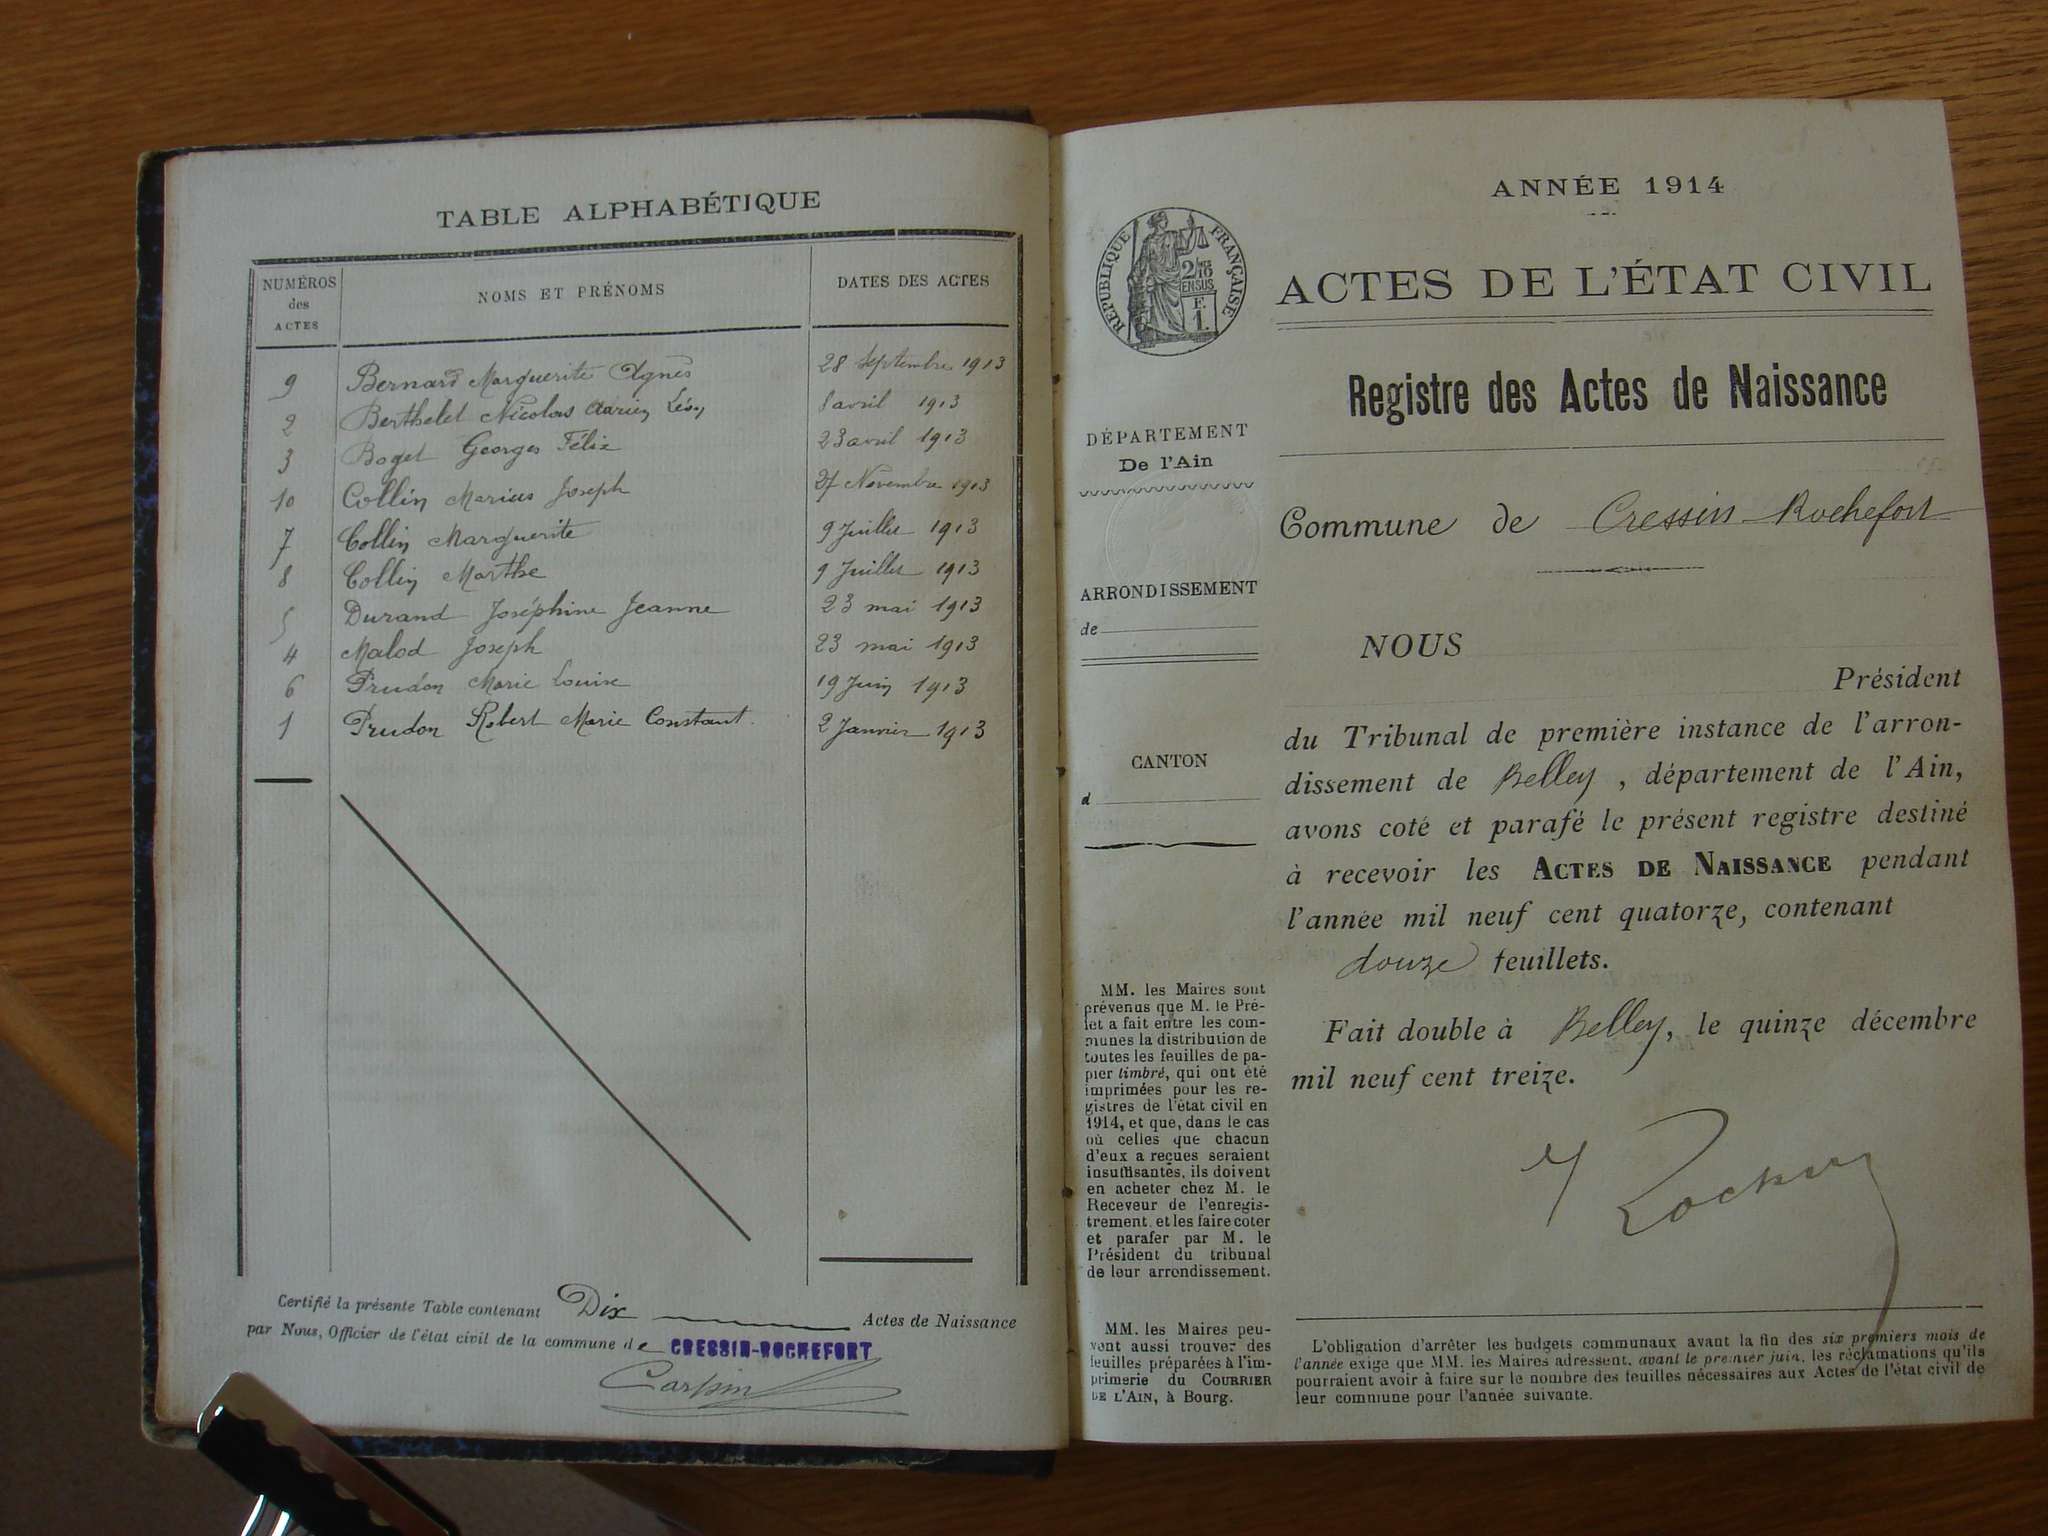 TABLE ALPHABÉTIQUE
NUMÉROS
des
ACTES
NOMS ET PRÉNOMS
DATES DES ACTES
9 Bernard Marguerite Agnès 28 Septembre 1913
2 Berthelet Nicolas Adrien Léon 8 avril 1913
3 Boget Georges Félix 23 avril 1913
10 Collin Marius Joseph 27 Novembre 1913
7 Collin Marguerite 9 Juillet 1913
8 Collin Marthe 9 Juillet 1913
5 Durand Joséphine Jeanne 23 mai 1913
4 Malod Joseph 23 mai 1913
6 Prudon Marie Louise 19 Juin 1913
1 Prudon Robert Marie Constant 2 Janvier 1913
Certifié la présente Table contenant Dix Actes de Naissance
par Nous, Officier de l'état civil de la commune de CRESSIN-ROCHEFORT
Carpin
ANNÉE 1914
RÉPUBLIQUE FRANÇAISE
ACTES DE L'ÉTAT CIVIL
Registre des Actes de Naissance
DÉPARTEMENT
De l'Ain
Commune de Cressin-Rochefort
ARRONDISSEMENT
de
CANTON
d
NOUS
Président
du Tribunal de première instance de l'arron-
dissement de Belley, département de l'Ain,
avons coté et parafé le présent registre destiné
à recevoir les ACTES DE NAISSANCE pendant
l'année mil neuf cent quatorze, contenant
douze feuillets.
Fait double à Belley, le quinze décembre
mil neuf cent treize.
MM. les Maires sont
prévenus que M. le Pré-
fet a fait entre les com-
munes la distribution de
toutes les feuilles de pa-
pier timbré, qui ont été
imprimées pour les re-
gistres de l'état civil en
1914, et que, dans le cas
où celles que chacun
d'eux a reçues seraient
insuffisantes, ils doivent
en acheter chez M. le
Receveur de l'enregis-
trement, et les faire coter
et parafer par M. le
Président du tribunal
de leur arrondissement.
MM. les Maires peu-
vent aussi trouver des
feuilles préparées à l'im-
primerie du COURRIER
DE L'AIN, à Bourg.
L'obligation d'arrêter les budgets communaux avant la fin des six premiers mois de
l'année exige que MM. les Maires adressent, avant le premier juin, les réclamations qu'ils
pourraient avoir à faire sur le nombre des feuilles nécessaires aux Actes de l'état civil de
leur commune pour l'année suivante.